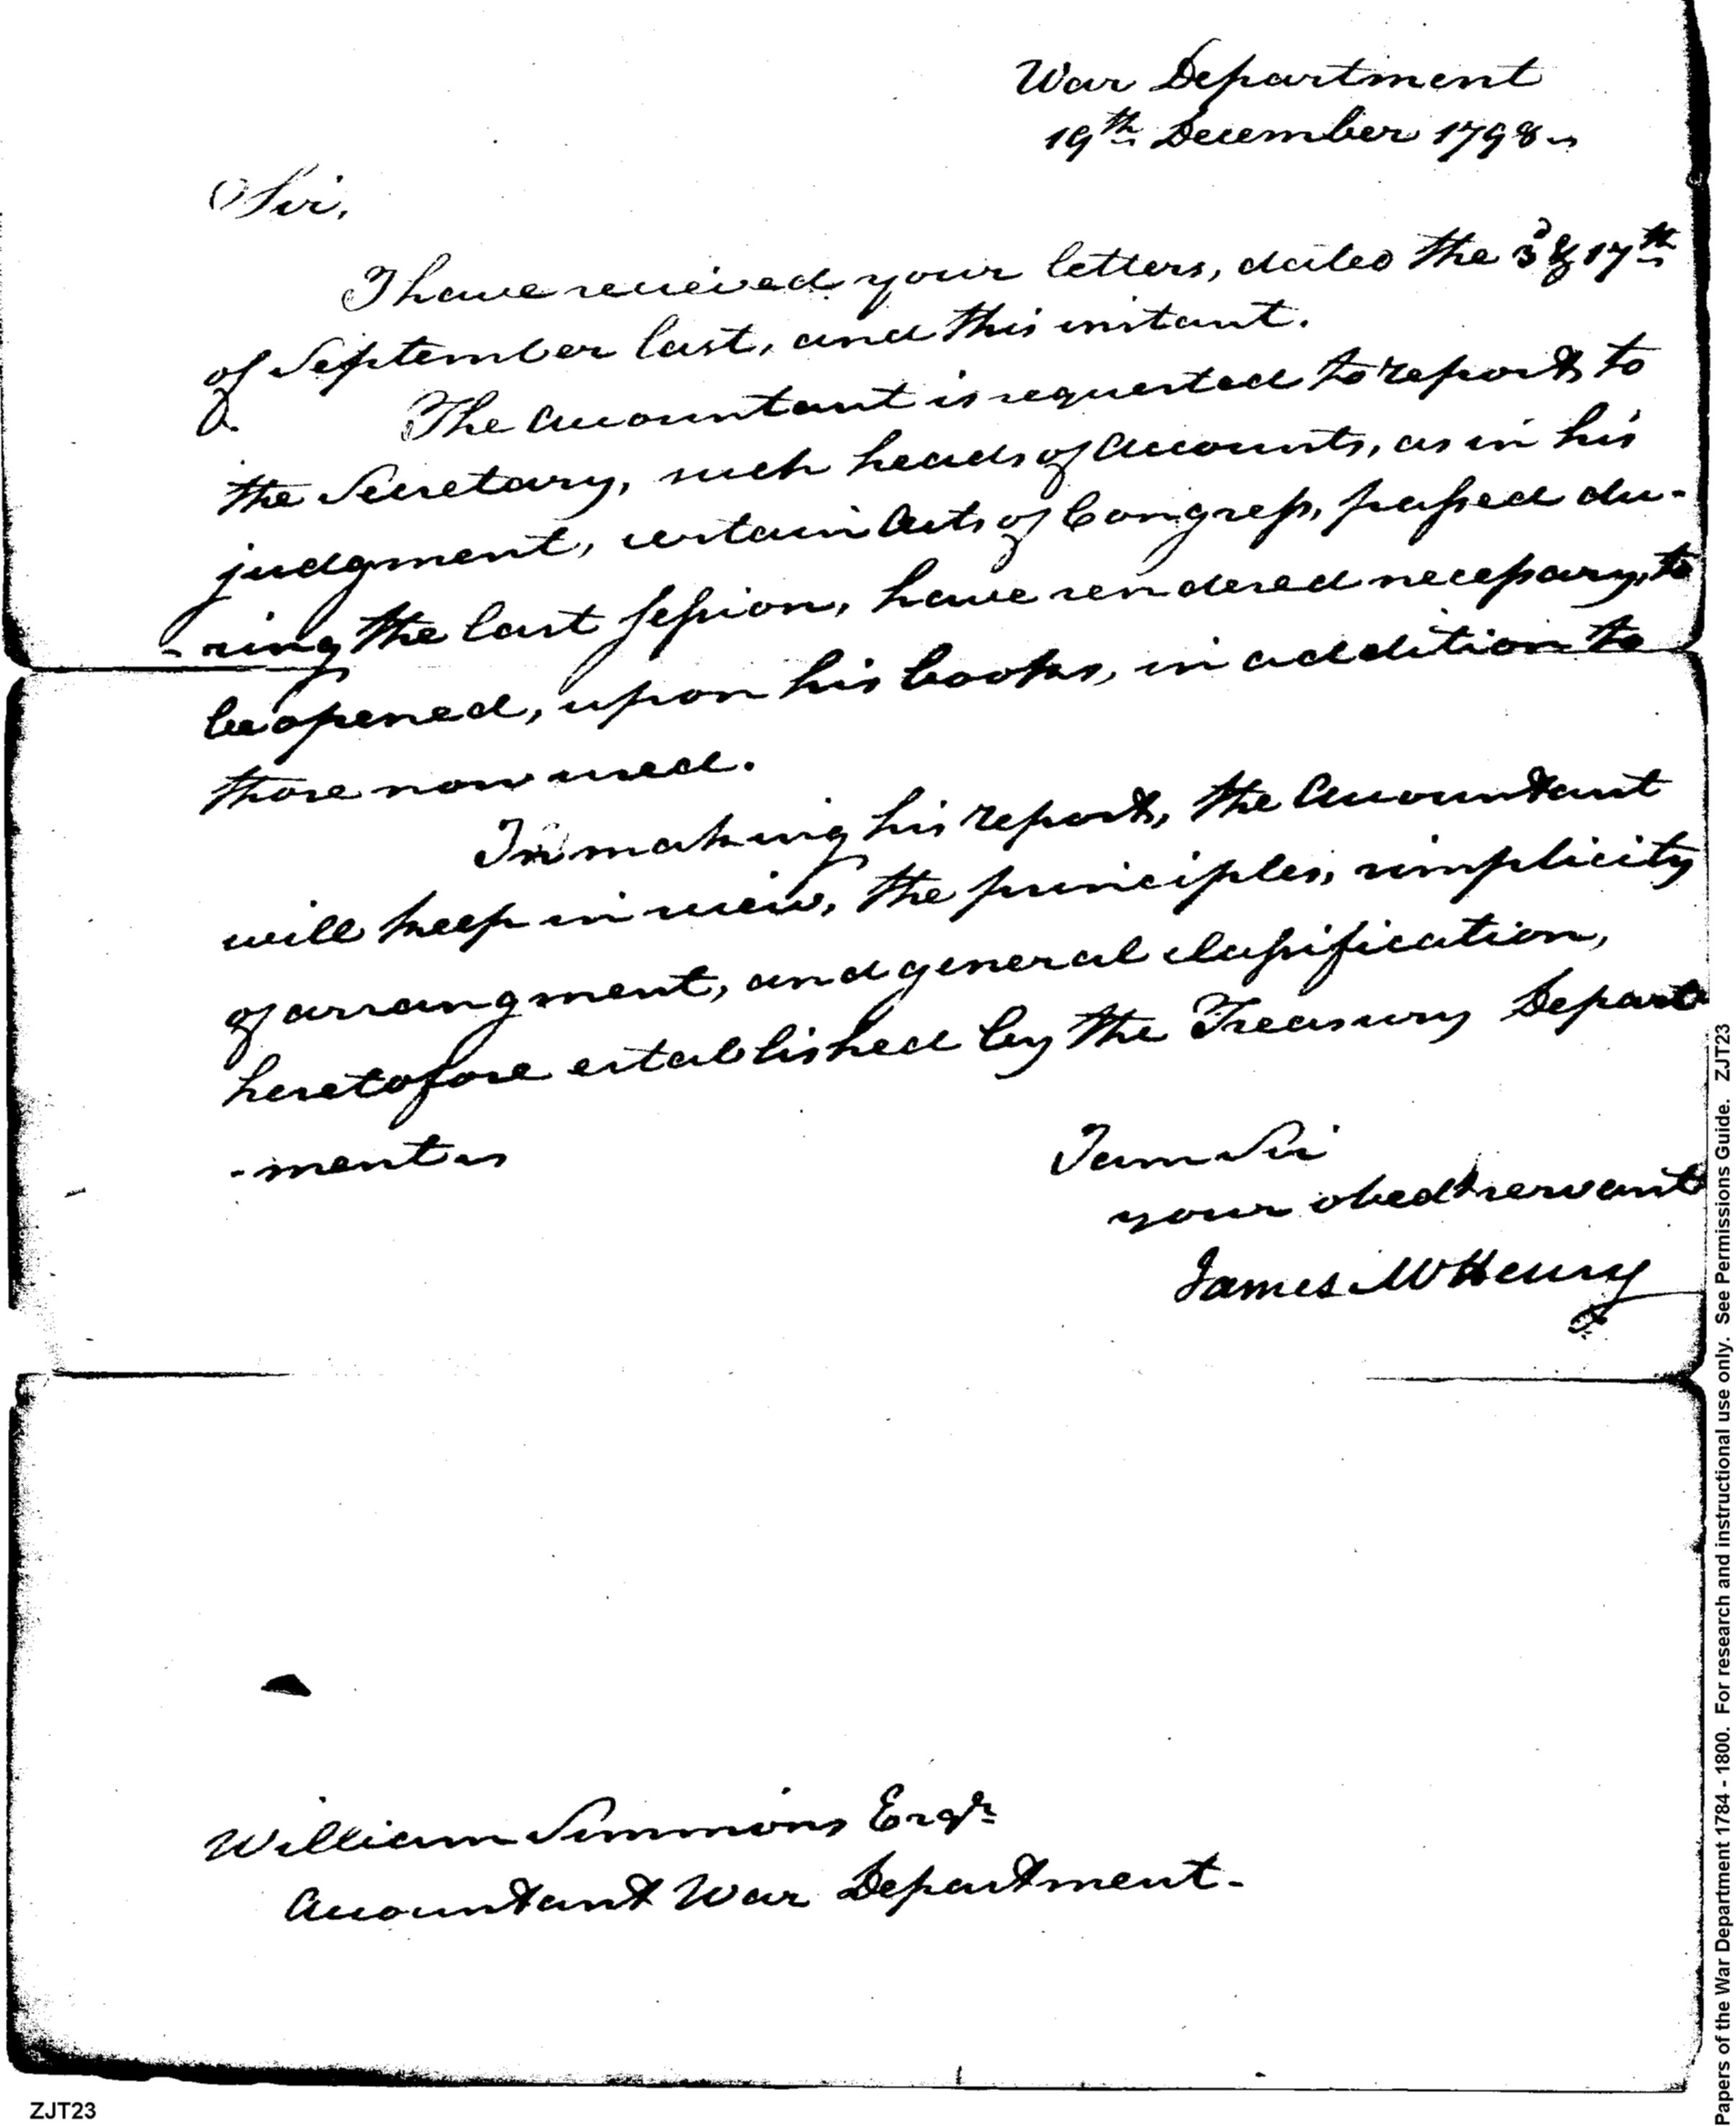 War Department
19th December 1798
Sir,
I have received your letters, dated the 3d & 17th
of September last, and this instant.
The Accountant is requested to report, to
the Secretary, such heads of Accounts, as in his
judgment, certain Acts of Congress, passed du-
-ring the last session, have rendered necessary, to
be opened, upon his books, in addition to
those now used.
In making his report, the Accountant
will keep in view, the principles, simplicity
of arrangment, and general classification,
heretofore established by the Treasury Depart
-ment
I am Sir
your obedt servant
James McHenry
William Simmons Esqr
Accountant War Department-
Papers of the War Department 1784 - 1800. For research and instructional use only. See Permissions Guide. ZJT23
ZJT23